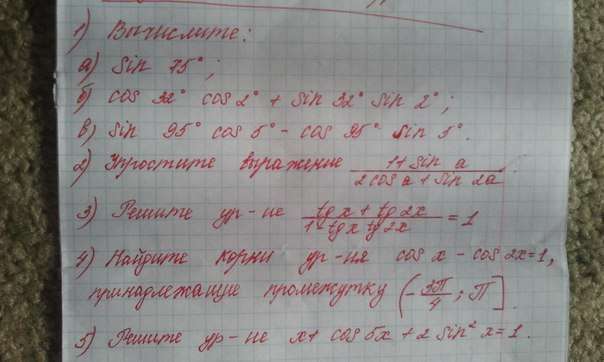 1) Вычислите:
а) sin 75°;
б) cos 32° cos 2° + sin 32° sin 2°;
в) sin 95° cos 5° - cos 95° sin 5°.
2) Упростите выражение (1+sin a)/(2cos a + sin 2a).
3) Решите ур-ие (tg x + tg 2x)/(1-tg x tg 2x) = 1
4) Найдите корни ур-ия cos x - cos 2x=1,
принадлежащие промежутку (-3π/4; π].
5) Решите ур-ие x+ cos 5x + 2 sin² x=1.